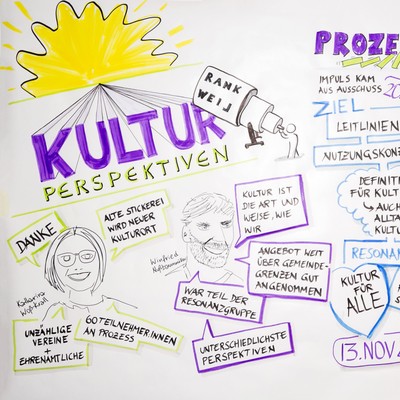 RANK
WEIL
KULTUR
PERSPEKTIVEN
DANKE
ALTE STICKEREI
WIRD NEUER
KULTURORT
Katharina
UNZÄHLIGE
VEREINE
+
EHRENAMTLICHE
60 TEILNEHMER:INNEN
AN PROZESS
Winfried
KULTUR IST
DIE ART UND
WEISE, WIE
WIR
ANGEBOT WEIT
ÜBER GEMEINDE-
GRENZEN GUT
ANGENOMMEN
WAR TEIL DER
RESONANZGRUPPE
UNTERSCHIEDLICHSTE
PERSPEKTIVEN
PROZE
IMPULS KAM
AUS AUSSCHUSS
ZIEL
LEITLINIEN
NUTZUNGSKONZ
DEFINITI
FÜR KULT
AUCH
ALLTA
KULTU
RESONAN
KULTUR
FÜR
ALLE
13. NOV